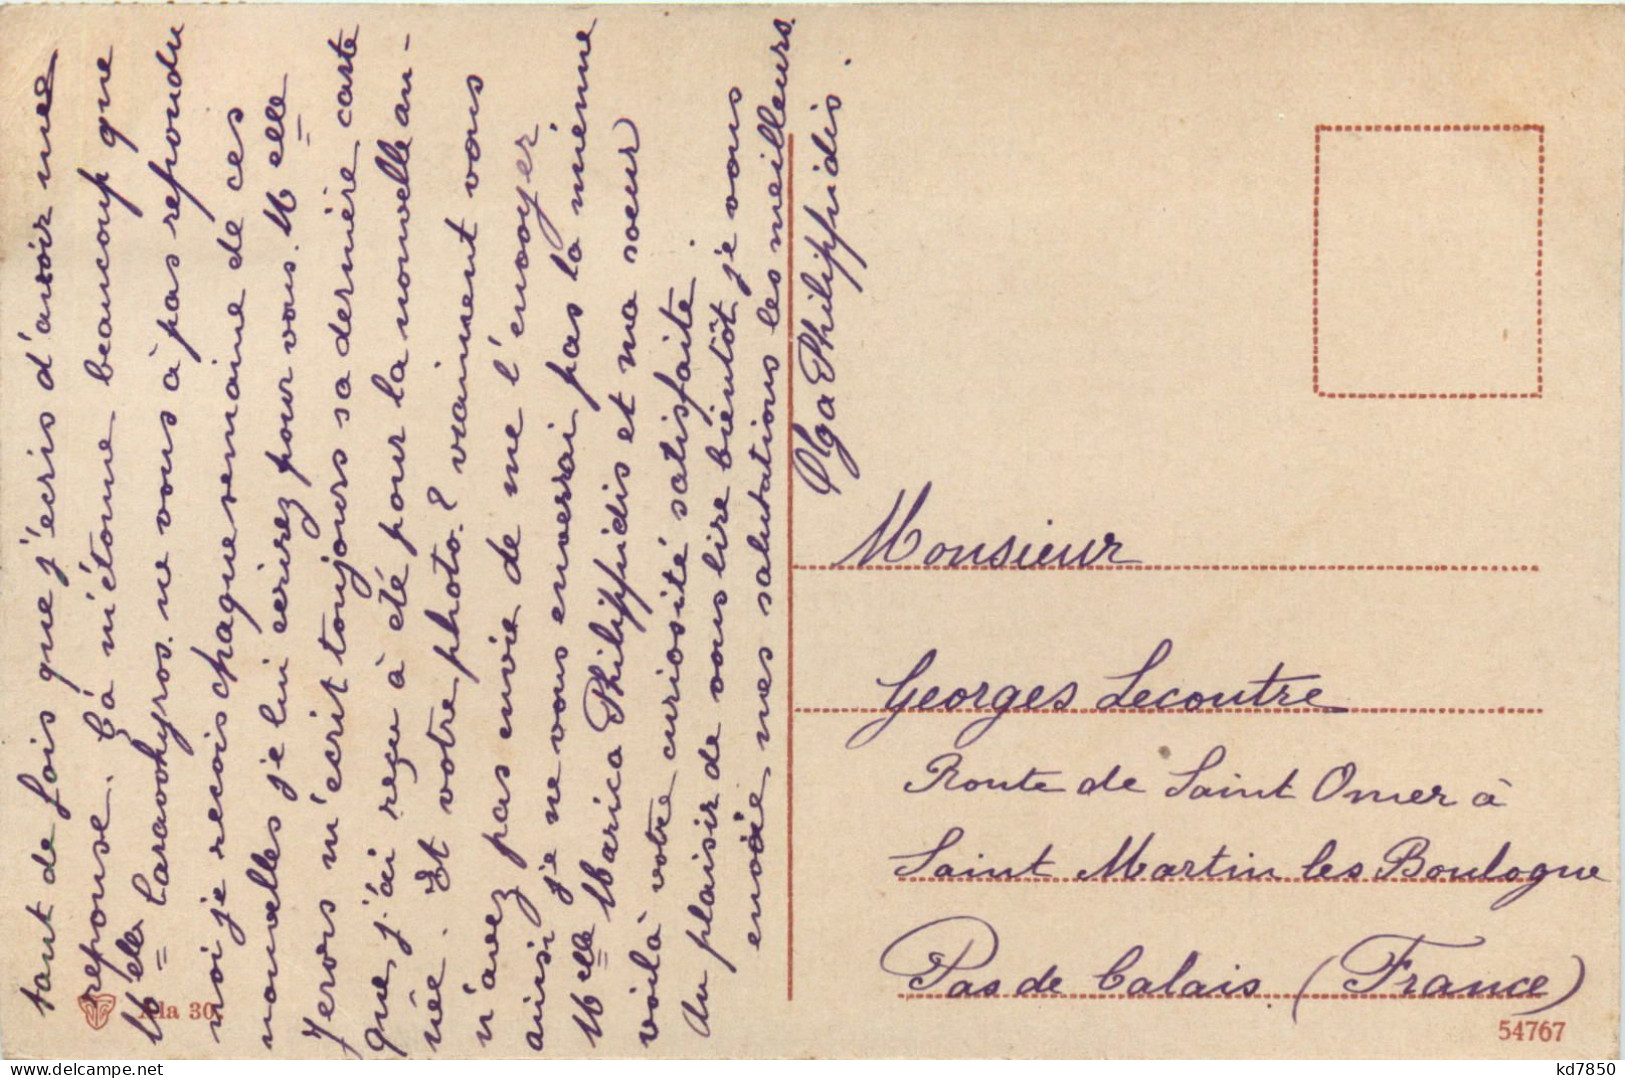 tant de fois que j'écris d'avoir une
reponse. Cà m'étonne beaucoup que
Melle Caravokyros ne vous à pas repondu
moi je recois chaque semaine de ces
nouvelles je lui ecrirez pour vous. Melle
Jerons m'écrit toujours sa dernière carte
que j'ai reçu à été pour la nouvelle an-
née. Et votre photo? vraiment vous
n'avez pas envie de me l'envoyer
ainsi je ne vous enverrai pas la mienne
Melle Marica Philippidis et ma soeur
voilà votre curiosité satisfaite.
Au plaisir de vous lire bientôt je vous
envoie mes salutations les meilleurs.
Olga Philippidis.
Monsieur
Georges Lecoutre
Route de Saint Omer à
Saint Martin les Boulogne
Pas de Calais (France)
Ala 30.
54767
kd7850